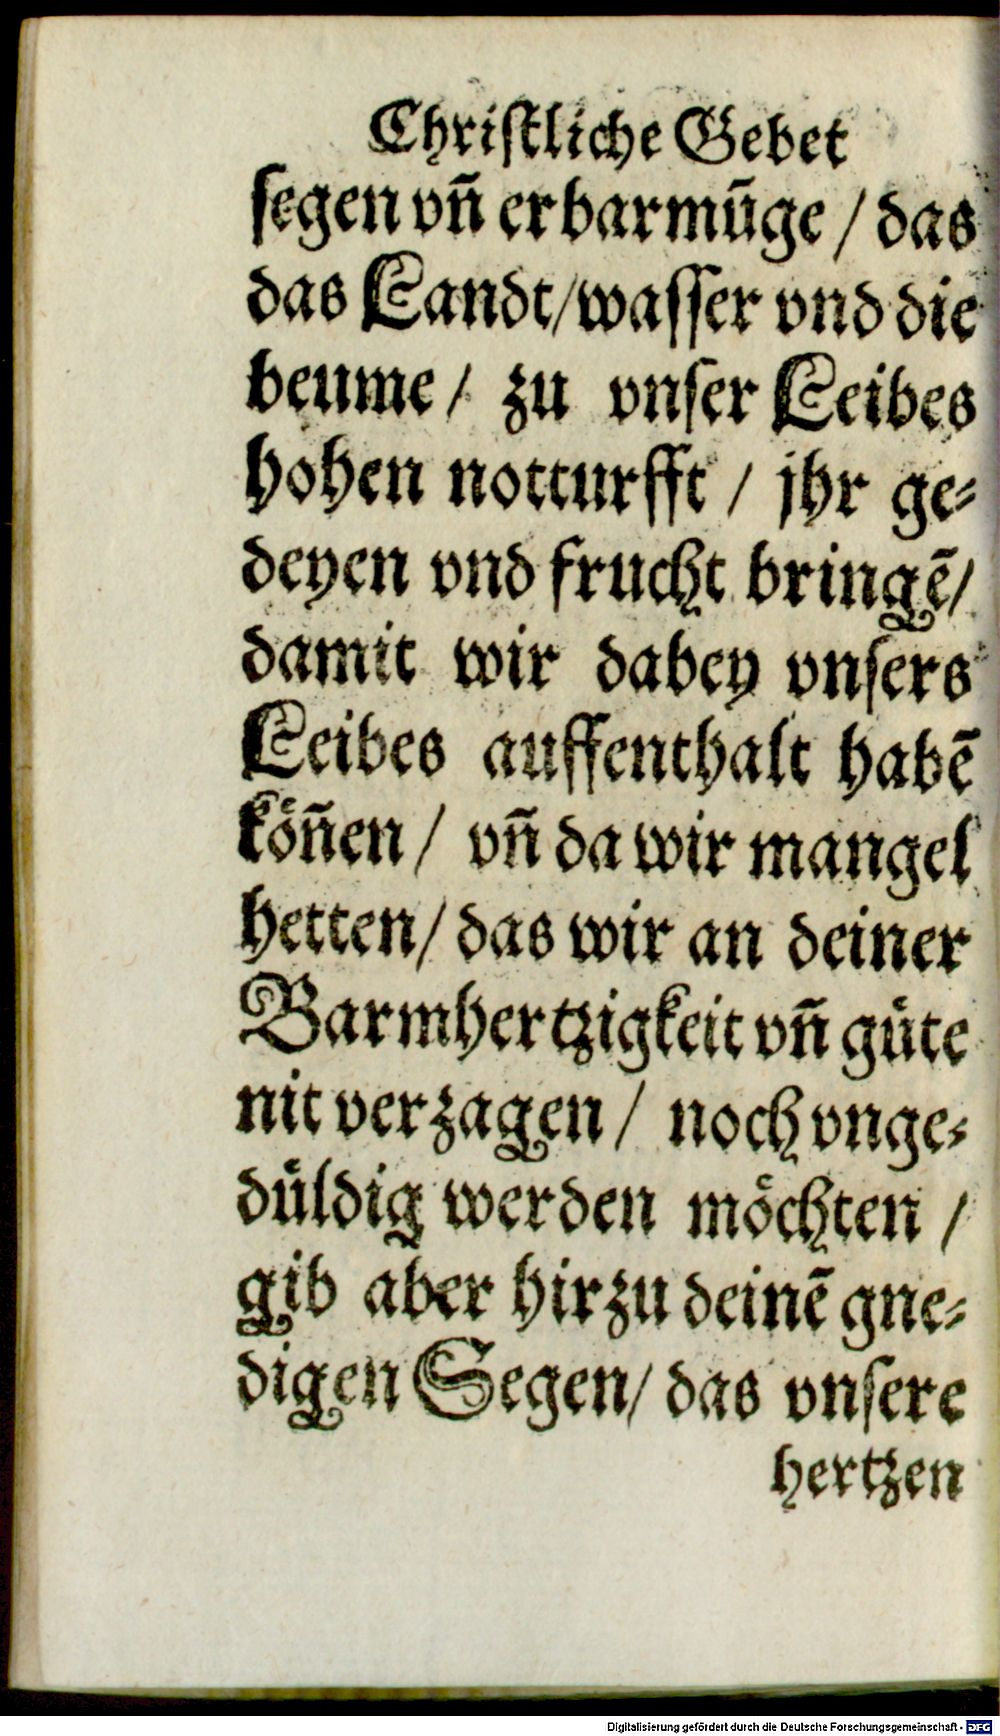 Chriſtliche Gebet
ſegen vñ erbarmūge / das
das Landt / waſſer vnd die
beume / zu vnſer Leibes
hohen notturfft / jhr ge⸗
deyen vnd frucht bringē /
damit wir dabey vnſers
Leibes auffenthalt habē
koͤñen / vñ da wir mangel
hetten / das wir an deiner
Barmhertzigkeit vñ guͤte
nit verzagen / noch vnge⸗
duͤldig werden moͤchten /
gib aber hirzu deinē gne⸗
digen Segen / das vnſere
hertzen
Digitalisierung gefördert durch die Deutsche Forschungsgemeinschaft - DFG